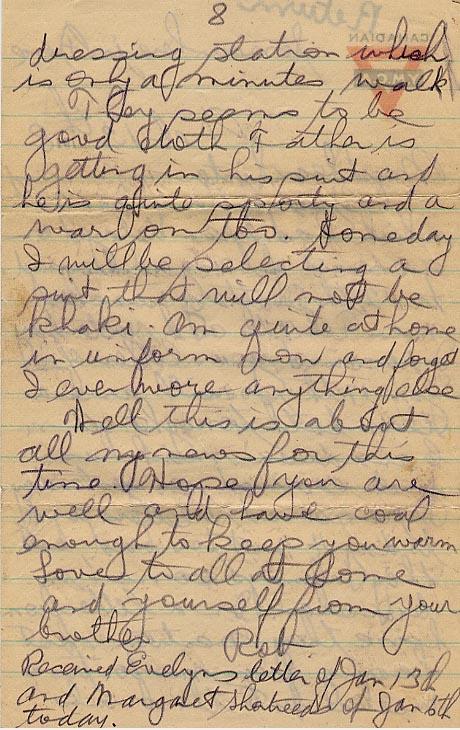 8
dressing station which
is only a minutes walk
They seems to be
good cloth Father is
getting in his suit and
he is quite sporty and a
war on too. Someday
I will be selecting a
suit that will not be
khaki. Am quite at home
in uniform now and forget
I ever wore anything else
Well this is about
all my news for this
time. Hope you are
well and have coal
enough to keep you warm
Love to all at home
and yourself from your
brother Rob
Received Evelyns letter of Jan 13th
and Margaret of Jan 6th
today.
Return
CANADIAN
YMCA